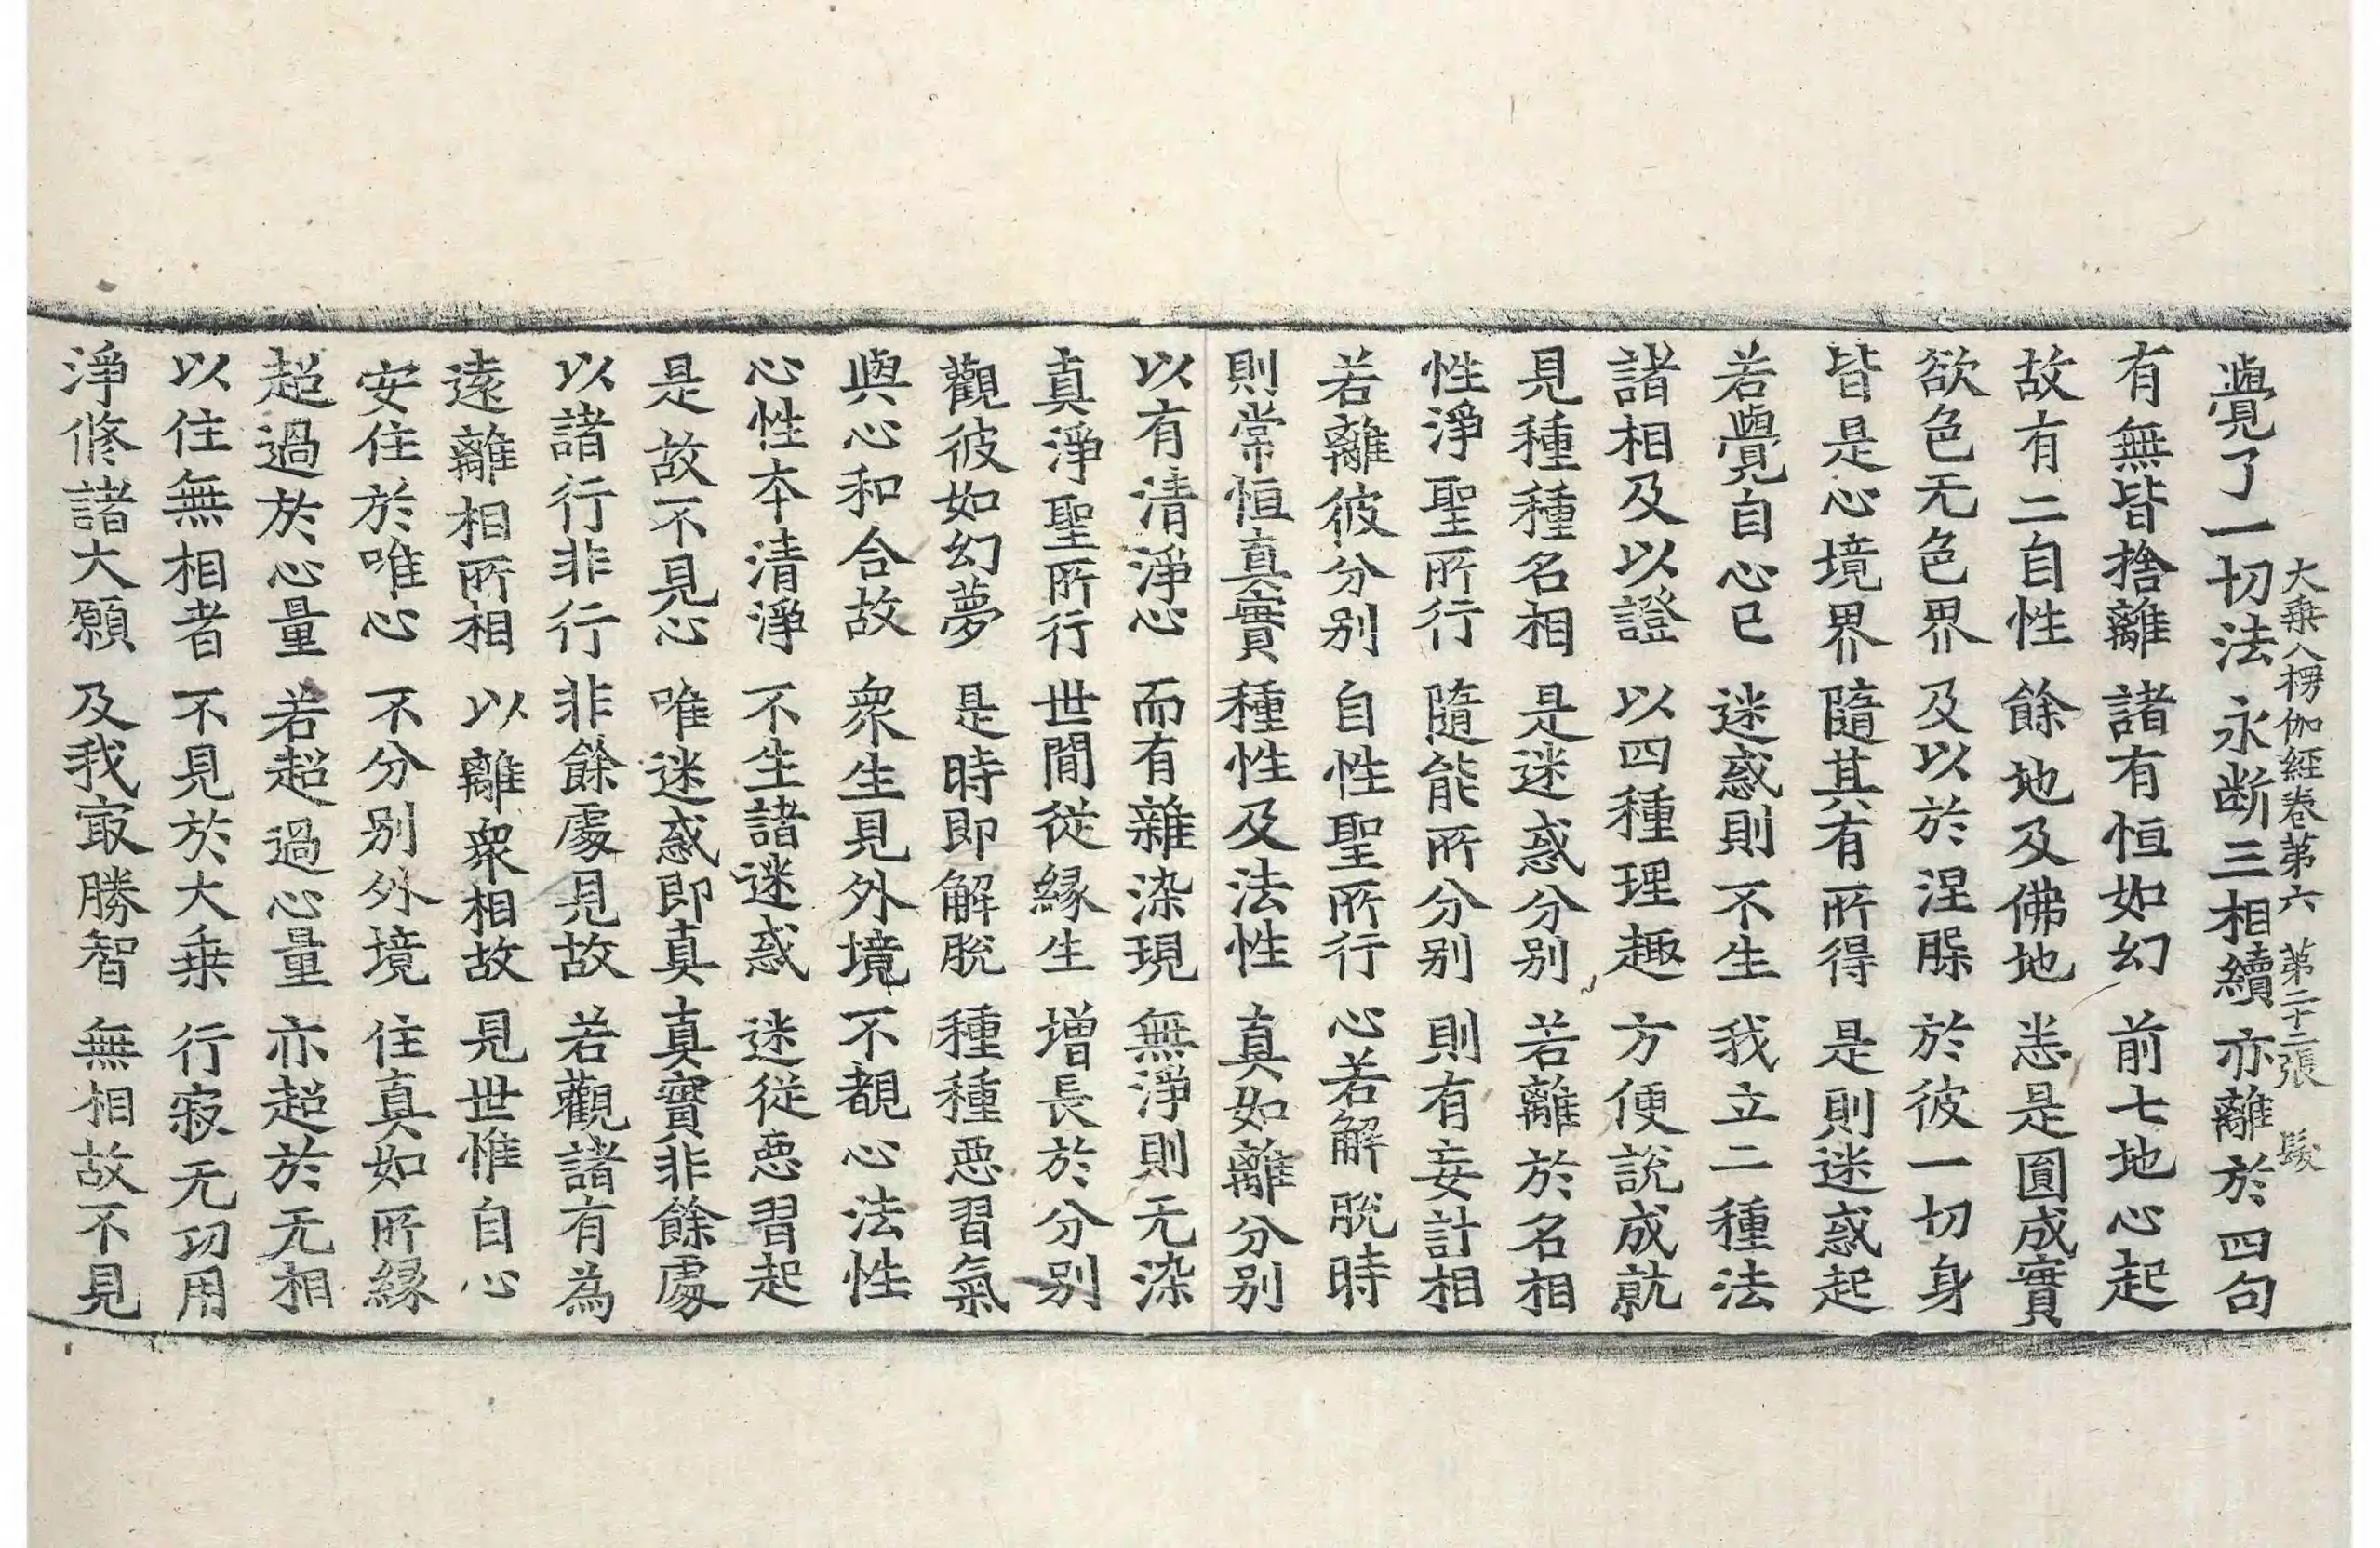 大乗入楞伽經卷第六 第二十二張 髮
覺了一切法 永断三相續 亦離於四句
有無皆捨離 諸有恒如幻 前七地心起
故有二自性 餘地及佛地 悉是圓成實
欲色无色界 及以於涅脲 於彼一切身
皆是心境界 隨其有所得 是則迷惑起
若覺自心已 迷惑則不生 我立二種法
諸相及以證 以四種理趣 方便說成就
見種種名相 是迷惑分别 若離於名相
性淨聖所行 隨能所分别 則有妄計相
若離彼分别 自性聖所行 心若解脫時
則常恒真實 種性及法性 真如離分别
以有清淨心 而有雜染現 無淨則无染
真淨聖所行 世間從緣生 增長於分别
觀彼如幻夢 是時即解脫 種種惡習氣
與心和合故 衆生見外境 不覩心法性
心性本清淨 不生諸迷惑 迷從惡習起
是故不見心 唯迷惑即真 真實非餘處
以諸行非行 非餘處見故 若觀諸有為
遠離相所相 以離衆相故 見世惟自心
安住於唯心 不分别外境 住真如所緣
超過於心量 若超過心量 亦超於无相
以住無相者 不見於大乗 行寂无功用
淨修諸大願 及我㝡勝智 無相故不見